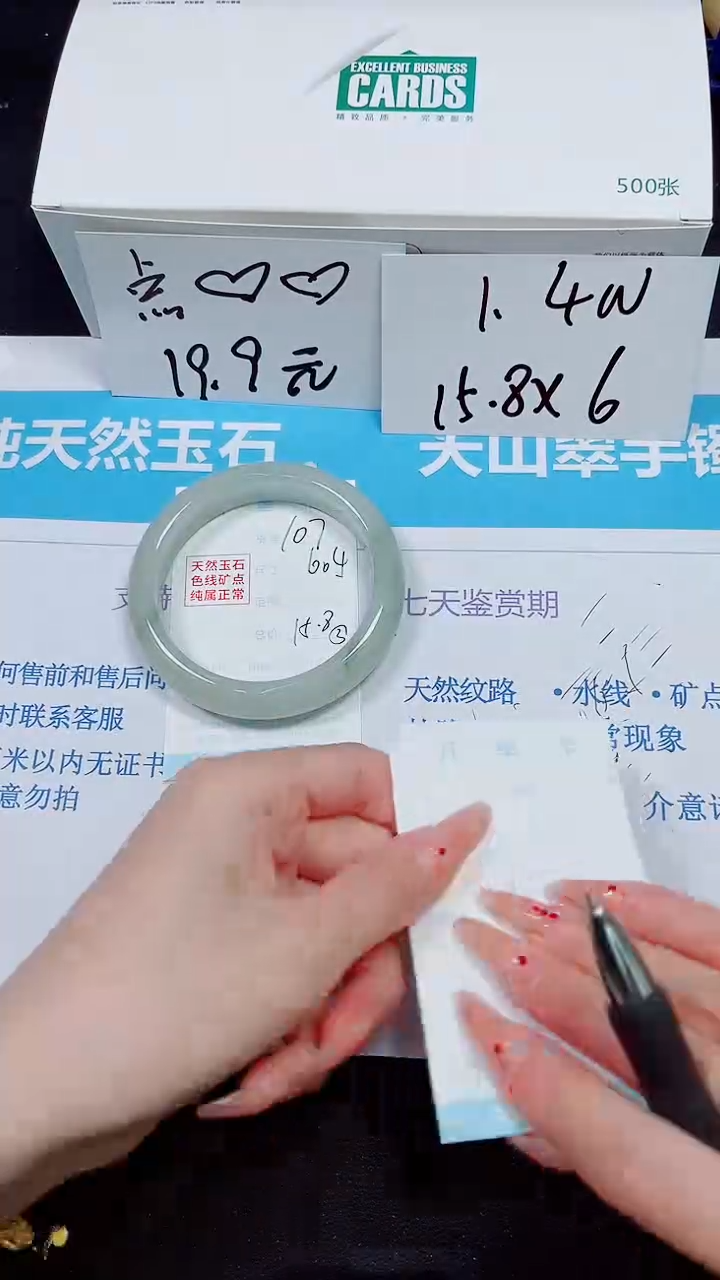 EXCELLENT BUSINESS
CARDS
精致品质 · 完美服务
500张
点♡♡
19.9元
1. 4W
15.8×6
纯天然玉石
天山翠手镯
天然玉石
色线矿点
纯属正常
107
604
15.8②
支持
七天鉴赏期
何售前和售后问
时联系客服
米以内无证书
意勿拍
天然纹路 ·水线 ·矿点
常现象
介意